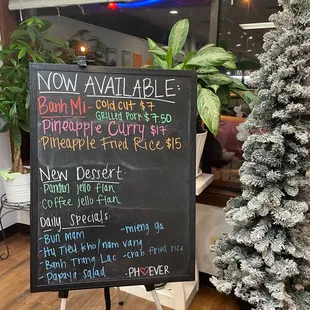 NOW AVAILABLE:
Banh Mi - cold cut $7
Grilled Pork $7.50
Pineapple Curry $17
Pineapple Fried Rice $15
New Dessert
Pandan jello flan
Coffee jello flan
Daily Specials
- Bun mam - mieng ga
- Hu Tieu kho/nam vang
- Banh Trang Lac - crab fried rice
- Papaya Salad
- PH♥EVER